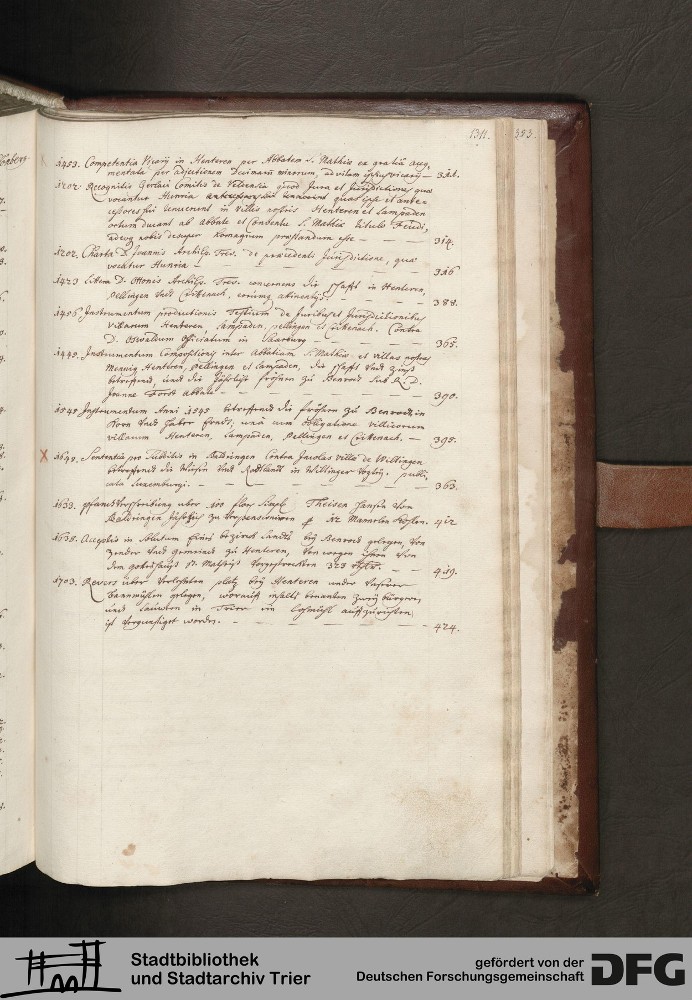 1311. 353.
1453. Competentia Vicarij in Henteren per Abbatem S. Mathiæ ex gratiâ aug
mentata per adjectionem Decimarum minorum, ad vitam vicarij — 311.
1202. Recognitio Gerlaci Comitis de Veldentia quod Jura et Jurisdictiones quæ
vocantur Hunria quas ipse et ante-
cessores sui tenuerunt in Villis nostris Henteren et Lampaden
ortum ducant ab Abbate et Conventu S. Mathiæ titulo Feudi,
adeoq nobis desuper homagium præstandum esse — 314.
1202. Charta D. Joannis Archiep. Trev. de præcedenti Jurisdictione, quæ
vocatur Hunria — 316
1423 Littera D. Ottonis Archiep. Trev. concernens die schafft in Henteren,
Pellingen undt Crittenach, 388.
1456 Instrumentum productionis Testium de Juribus et Jurisdictionibus
Villarum Henteren, Lampaden, Pellingen et Crittenach. Contra
D. Oswaldum Officiatum in Saarburg — 365.
1449. Instrumentum Compositionis inter Abbatiam S. Mathiæ et villas nostras
Mennig Henteren, Pellingen et Lampaden, die schafft undt Zinß
betreffend, undt die Jährliche fröhnen zu Benrodt sub R. D.
Joanne Forst Abbate — 390.
1545 Instrumentum Anni 1545 betreffend die fröhnen zu Benrodt in
Korn undt Haber Erndt; unà cum obligatione villicorum
villarum Henteren, Lampaden, Pellingen et Crittenach. — 395.
1649. Sententia pro Subditis in Baldringen Contra Incolas Villæ de Wiltingen
betreffend die undt Rodtlandt in Wiltinger Vogtey. publi,
cata Luxemburgi. — 363.
1633. pfandt Verschreibung uber 100 flor. Simpl. Theisen Hansen von
Baldringen Jährlich zu Verpensioniren 412
1638. Acceptio in Solutum Eines bezircks Landts bey Benrodt gelegen, von
Zender undt gemeindt zu Henteren, von wegen ihnen von
dem gotteshauß St. Mathiß Vorgestreckten 323 — 419.
1703. Revers über Verlehnten platz bey Henteren under
bannmühlen gelegen, worauff inhalts benanten zwey bürgeren
undt Lauwern in Trier ein Lohmühl auffzurichten
ist Vergünstiget worden. — 424.
Stadtbibliothek
und Stadtarchiv Trier
gefördert von der
Deutschen Forschungsgemeinschaft
DFG